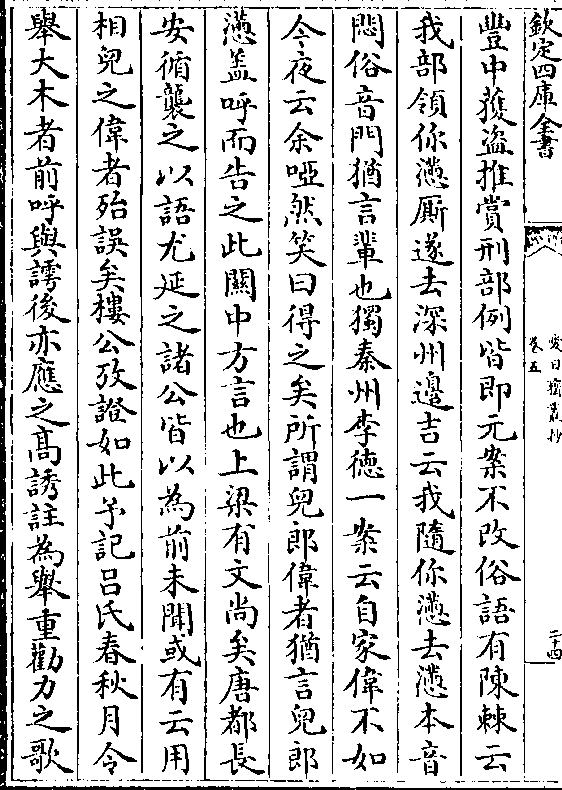 欽定四庫全書
愛日齋叢抄
卷五
二十四
豐中獲盜推賞刑部例皆即元案不改俗語有陳棘云
我部領你懣厮逐去深州邊吉云我隨你懣去懣本音
悶俗音門猶言輩也獨秦州李德一案云自家偉不如
今夜云余啞然笑曰得之矣所謂兒郎偉者猶言兒郎
懣盖呼而告之此關中方言也上梁有文尚矣唐都長
安循襲之以語尤延之諸公皆以為前未聞或有云用
相兒之偉者殆誤矣樓公攷證如此予記吕氏春秋月令
舉大木者前呼與謣後亦應之高誘註為舉重勸力之歌